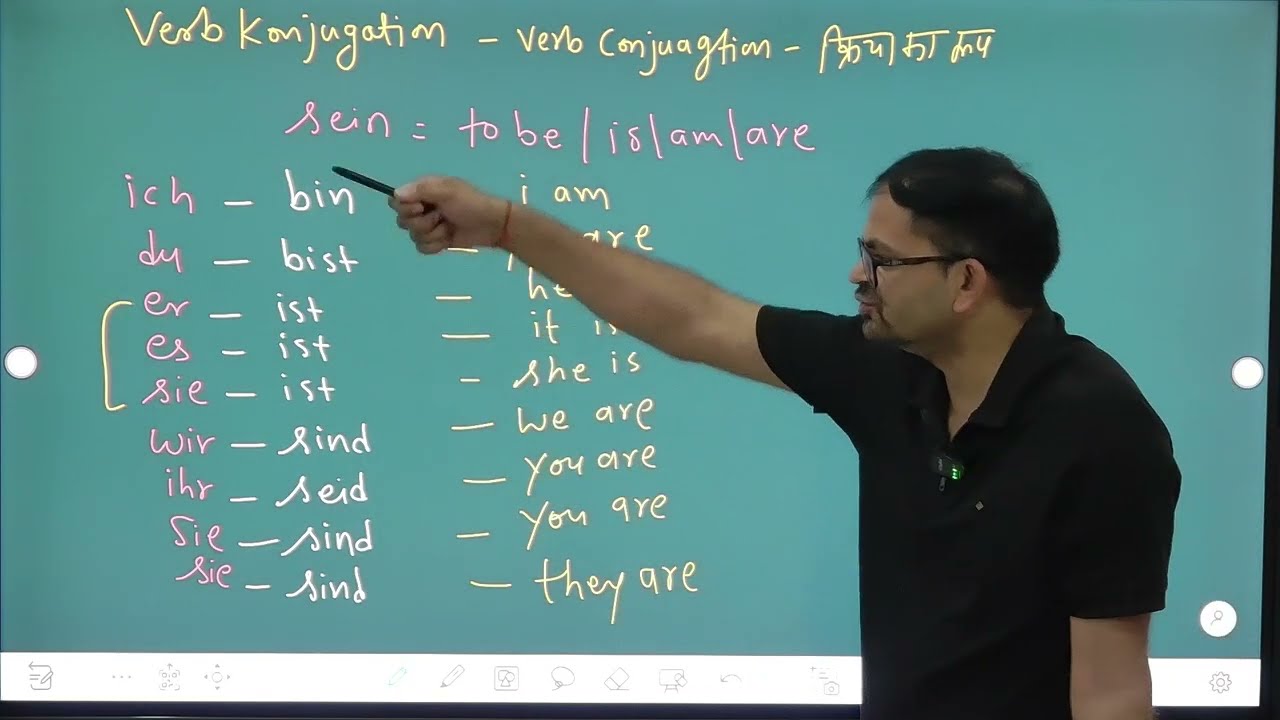 Verb Konjugation - Verb Conjuagtion - क्रिया का रूप
sein = to be / is/am/are
ich - bin i am
du - bist - are
er - ist - he
es - ist - it is
sie - ist - she is
wir - sind - we are
ihr - seid - you are
Sie - sind - you are
sie - sind - they are